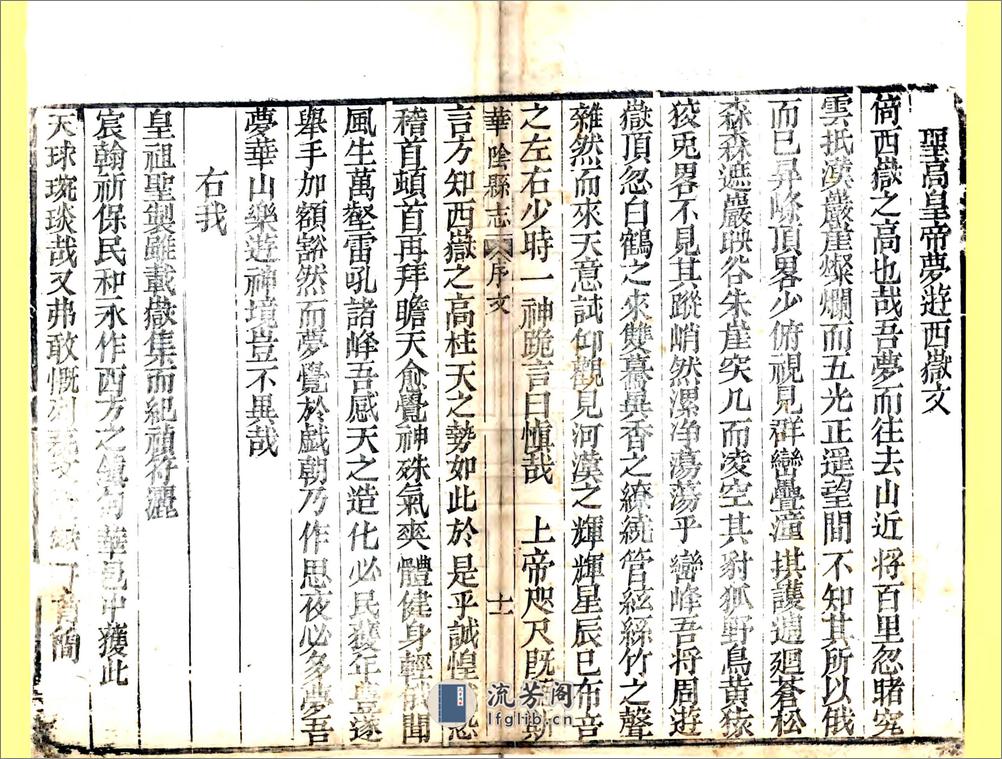 聖高皇帝夢遊西嶽文
倚西嶽之高也哉吾夢而往去山近將百里忽睹穿
雲抵漢巖崖燦爛而五光正遥望間不知其所以俄
而已昇峰頂畧少俯視見群巒疊潼拱護週迴蒼松
森森遮巖映谷朱崖突兀而凌空其豺狐野鳥黃猿
狡兎畧不見其蹤峭然漯净蕩蕩乎巒峰吾將周遊
嶽頂忽白鶴之來雙驀異香之繚繞管絃絲竹之聲
雜然而來天意試仰觀見河漢之輝輝星辰巳布吾
之左右少時一神跪言曰愼哉 上帝咫尺既斯
華陰縣志 序文 十一
言方知西嶽之高柱天之勢如此於是乎誠惶恐
稽首頓首再拜瞻天愈覺神殊氣爽體健身輕俄聞
風生萬壑雷吼諸峰吾感天之造化必民獲年豊遂
舉手加額豁然而夢覺於戲朝乃作思夜必多夢吾
夢華山樂遊神境豈不異哉
右我
皇祖聖製雖載嶽集而紀禎符灑
宸翰祈保民和永作西方之鎮華邑中獲此
天球琬琰哉又弗敢慨簡
流芳阁
lfglib.cn